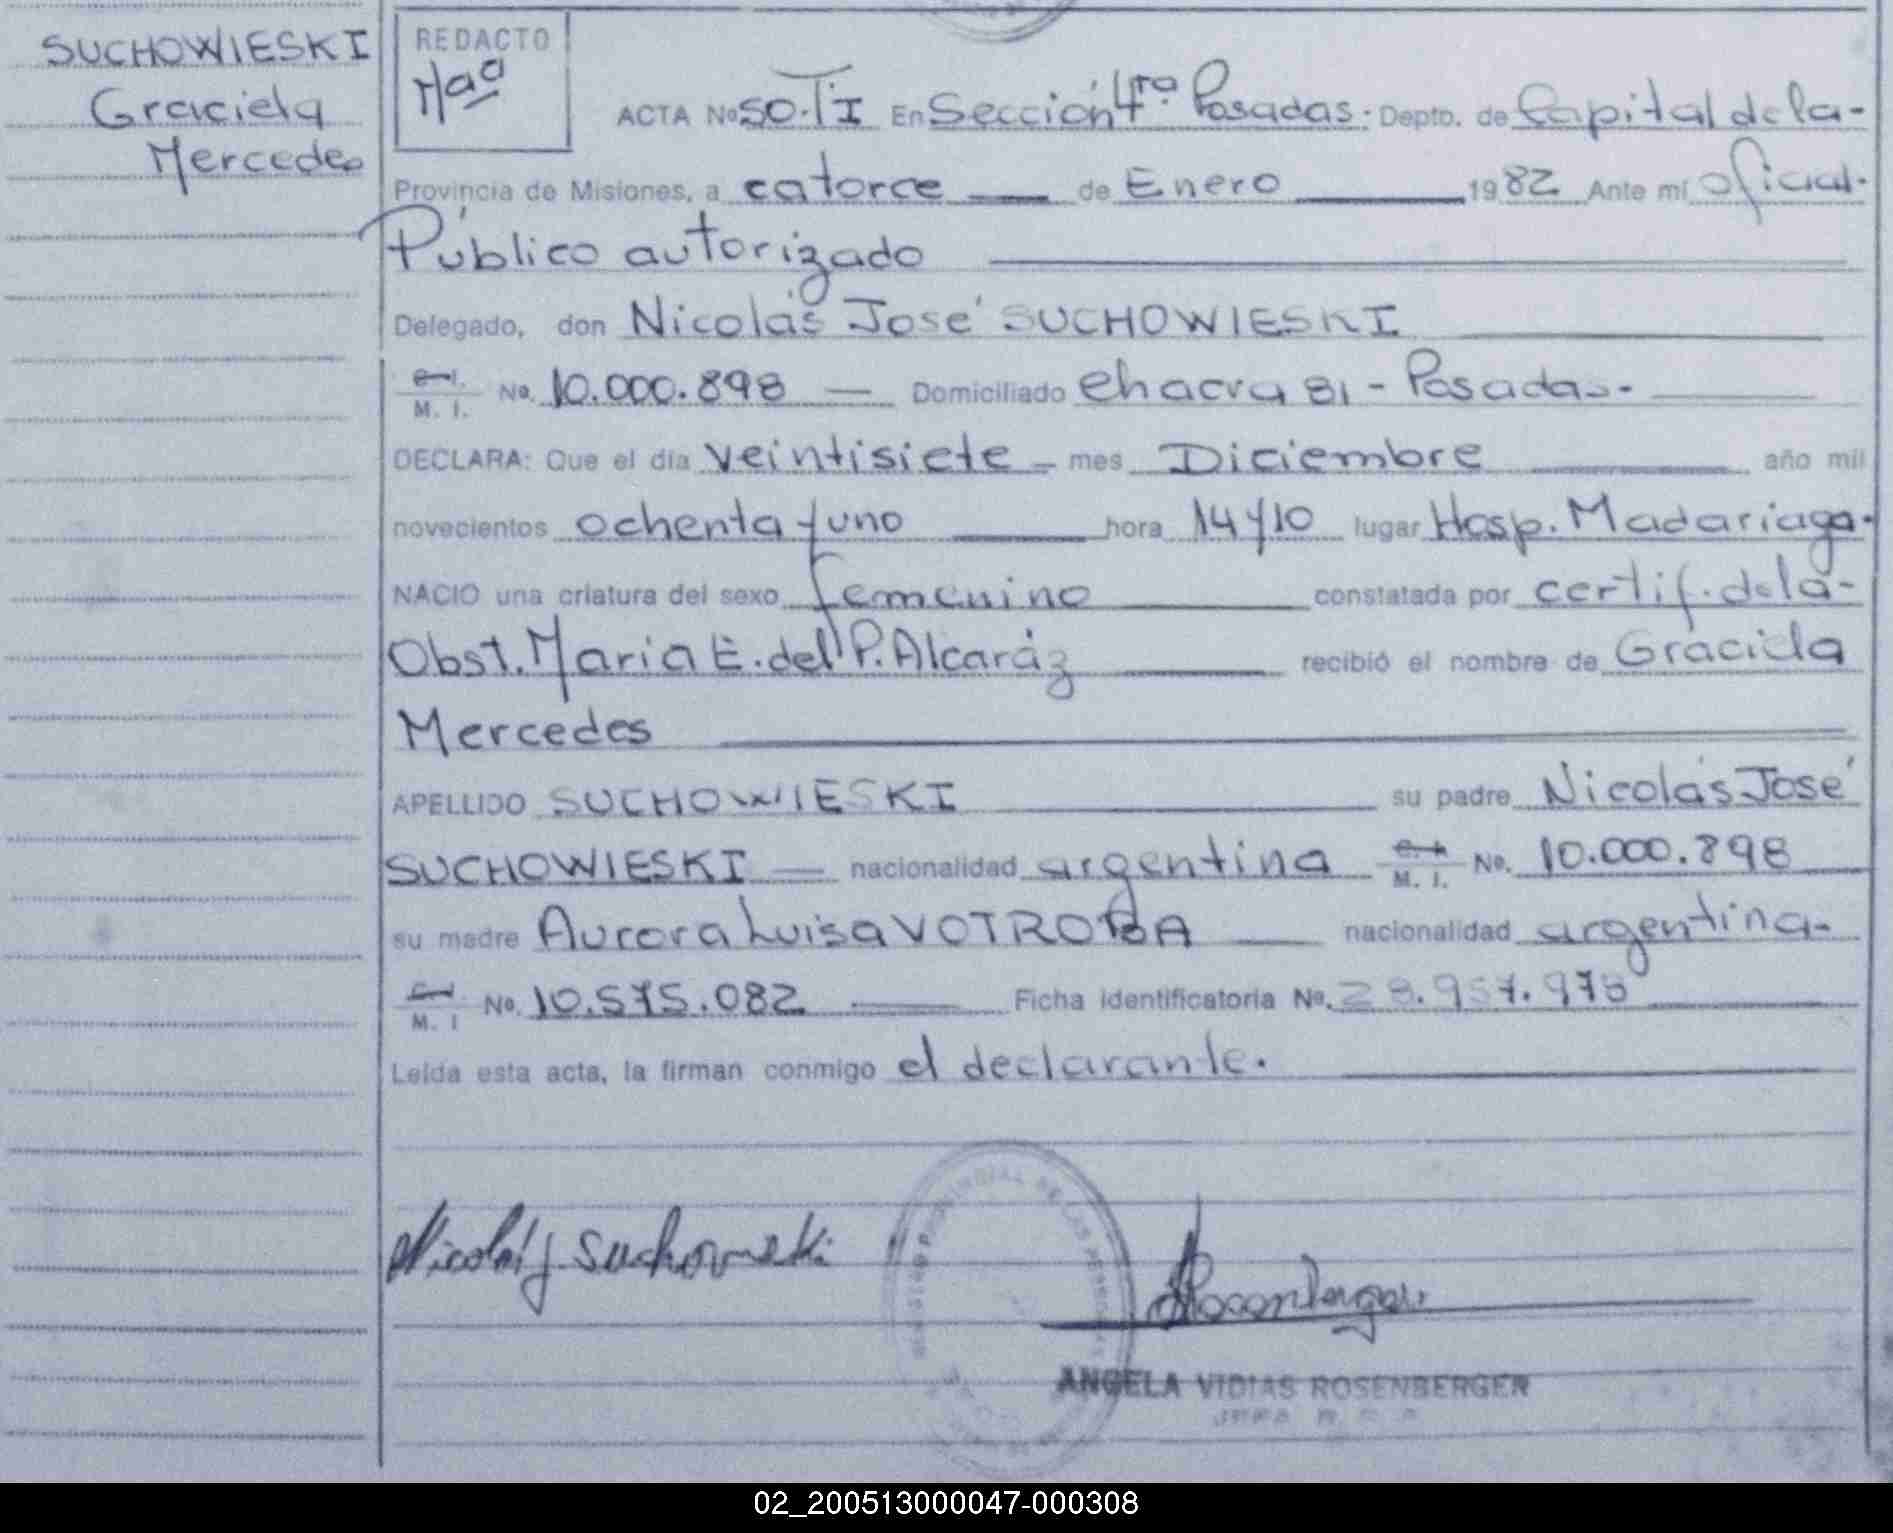 SUCHOWIESKI
Graciela
Mercedes
REDACTO
Maa
ACTA No 50.TI En Sección 4ra Posadas. Depto. de Capital de la-
Provincia de Misiones, a catorce — de Enero — 1982 Ante mí oficial.
Público autorizado
Delegado, don Nicolás José SUCHOWIESKI
M. I. No. 10.000.898 — Domiciliado chacra 81 - Posadas.-
DECLARA: Que el día veintisiete - mes Diciembre año mil
novecientos ochenta y uno hora 14 y 10 lugar Hosp. Madariaga.
NACIO una criatura del sexo femenino constatada por certif. de la-
Obst. Maria E. del P. Alcaráz recibió el nombre de Graciela
Mercedes
APELLIDO SUCHOWIESKI su padre Nicolás José
SUCHOWIESKI — nacionalidad argentina C. I. M. I. No. 10.000.898
su madre Aurora Luisa VOTROBA nacionalidad argentina.-
M. I No. 10.575.082 Ficha identificatoria No. 28.957.978
Leída esta acta, la firman conmigo el declarante.
Nicolás J Suchowieski
Rosenberger
ANGELA VIDIAS ROSENBERGER
PROVINCIAL DE LAS PERSONAS
02_200513000047-000308